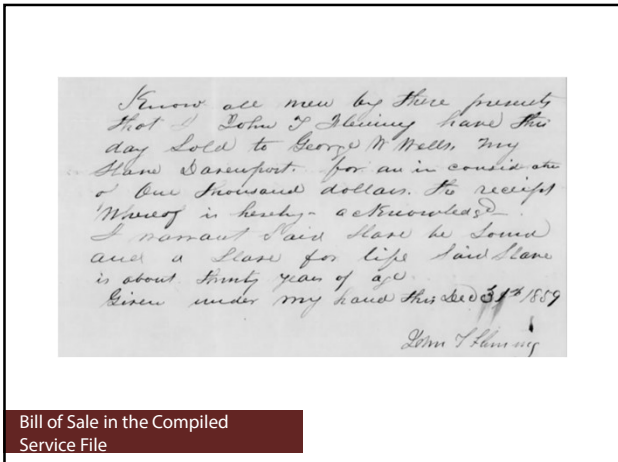 Know all men by these presents
that I John T Fleming have this
day Sold to George W Wells my
Slave Davenport. for an in considerate
o One thousand dollars. the receipt
Whereof is hereby acknowledged
I warrant Said Slave be Sound
and a Slave for life Said Slave
is about years of age
Given under my hand this Dec 31st 1859
John T Fleming
Bill of Sale in the Compiled
Service File